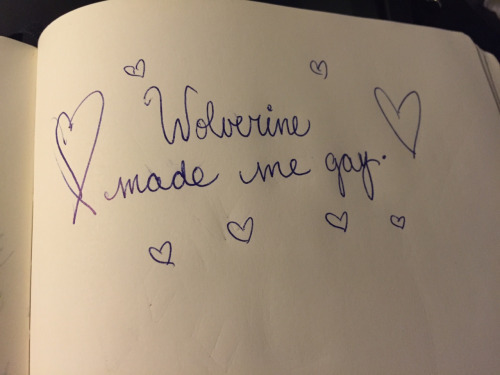 Wolverine
made me gay.